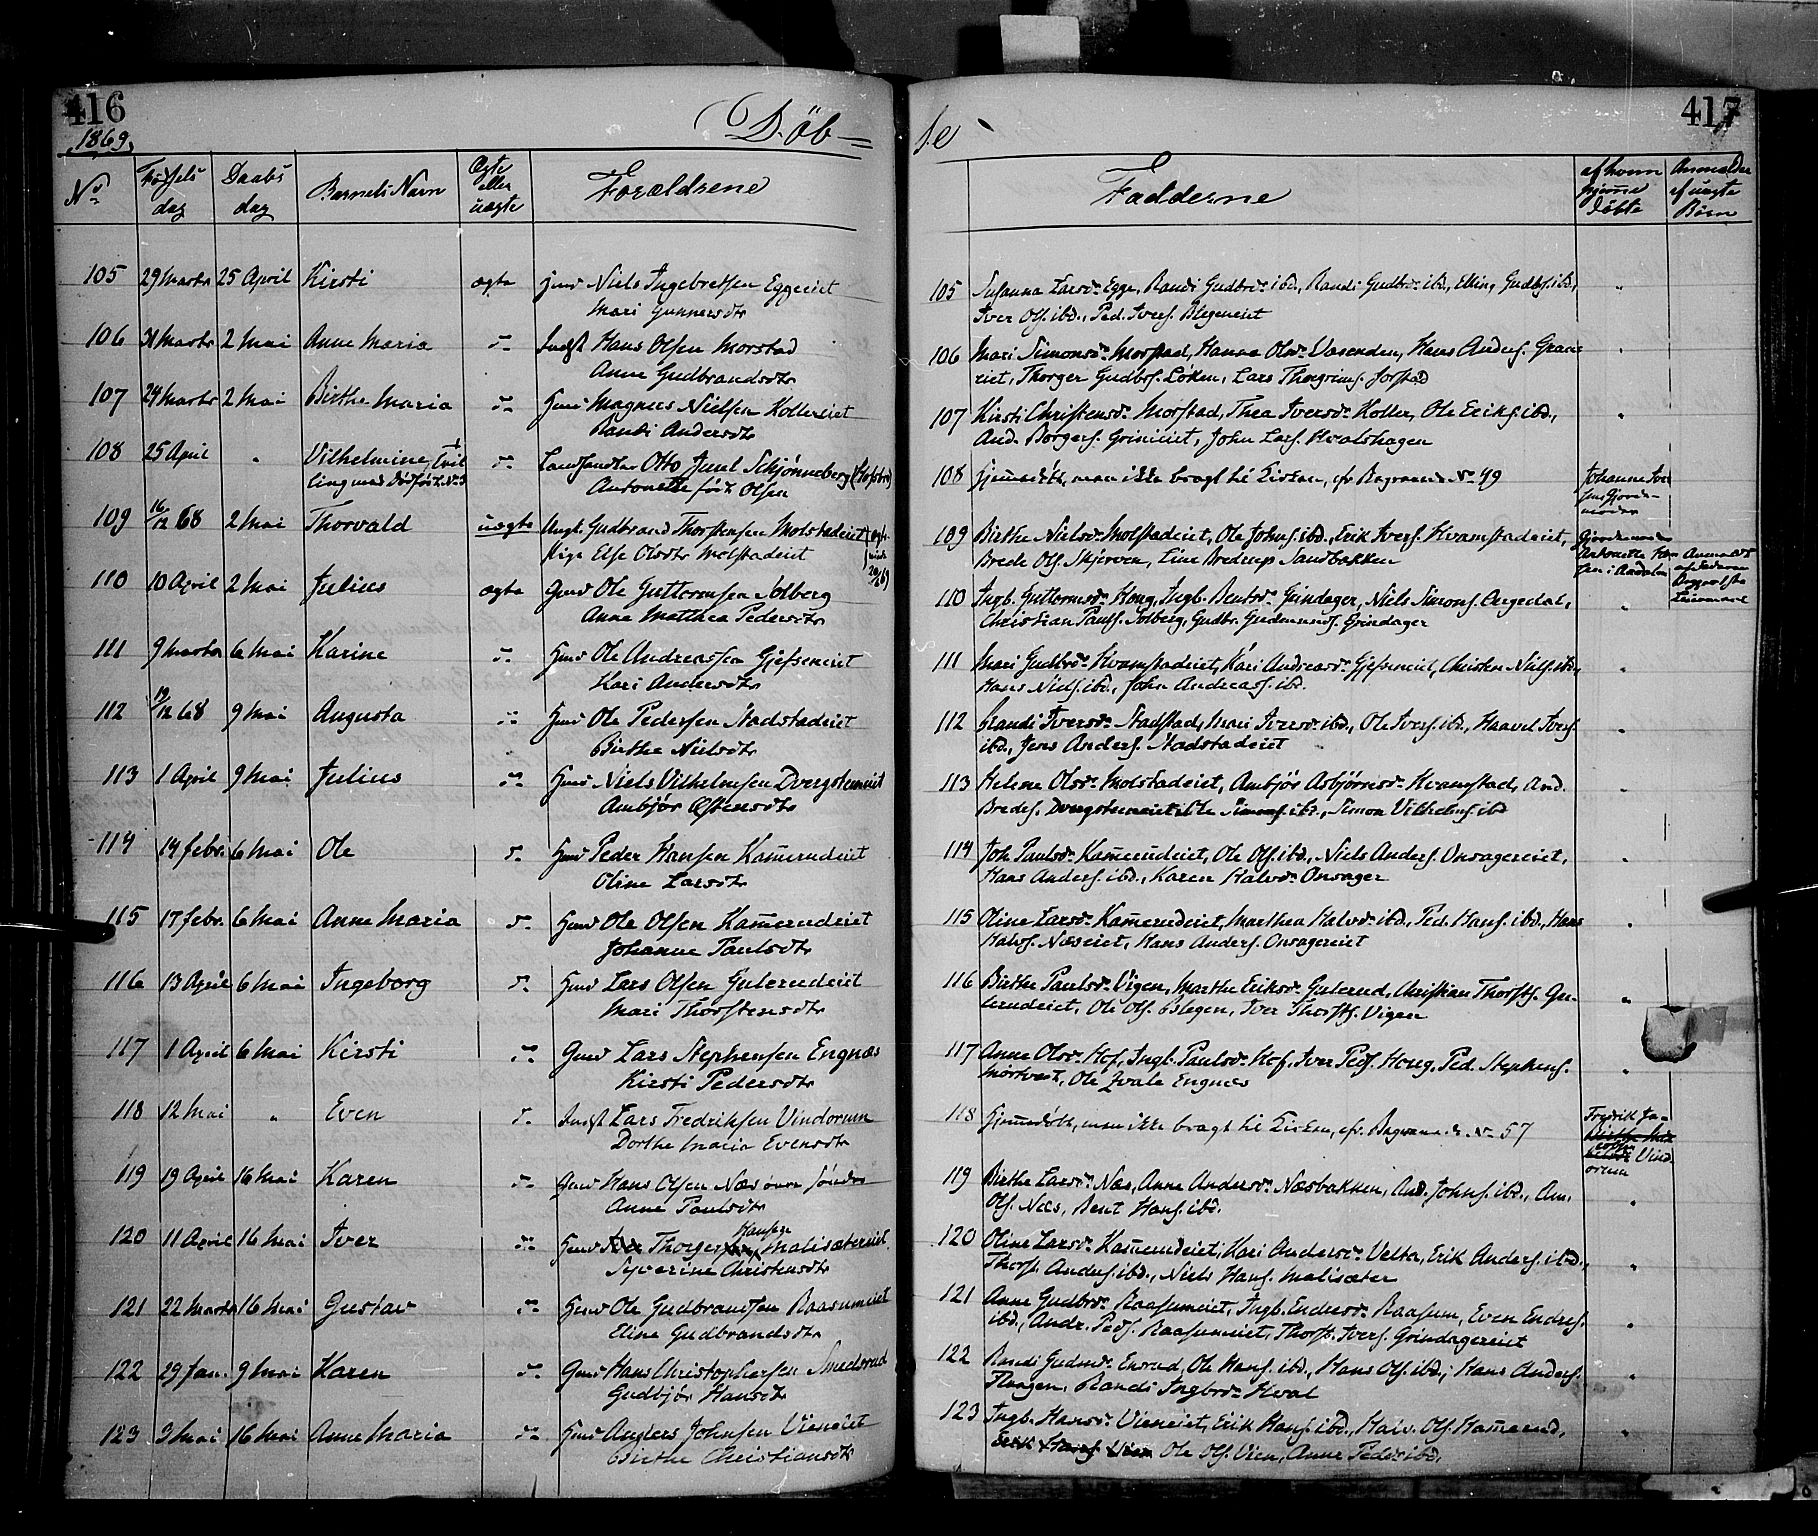 416
1869.
Døb=
No
Fødsels dag
Daabs dag
Barnets Navn
Ægte eller uægte
Forældrene
105 29 Marts 25 April Kirsti ægte Hmd Niels Ingebretsen Eggeeiet
Mari Gunnersdtr
106 31 Marts 2 Mai Anne Maria do Indst Hans Olsen Morstad
Anne Gudbrandsdtr
107 24 Marts 2 Mai Birthe Maria do Hmd Magnus Nielsen Kollereiet
Randi Andersdtr
108 25 April " Vilhelmine, Tvil do Landhandler Otto Juul Schjønneberg (Hofsbro)
ling med Dødfødt No 3 Antonette født Olsen
109 16/12 68 2 Mai Thorvald uægte Ungk. Gudbrand Thorstensen Molstadeiet
Pige Else Olsdtr Molstadeiet
110 10 April 2 Mai Julius ægte Gmd Ole Guttormsen Solberg
Anne Mathea Pedersdtr
111 9 Marts 6 Mai Karine do Hmd Ole Andreassen Gjefseneiet
Kari Andersdtr
112 19/12 68 9 Mai Augusta do Hmd Ole Pedersen Stadstadeiet
Birthe Nielsdtr
113 1 April 9 Mai Julius do Hmd Niels Vilhelmsen Dvergsteneiet
Ambjør Østensdtr
114 14 febr. 6 Mai Ole do Hmd Peder Hansen Kamerudeiet
Oline Larsdtr
115 17 febr. 6 Mai Anne Maria do Hmd Ole Olsen Kamerudeiet
Johanne Paulsdtr
116 13 April 6 Mai Ingeborg do Hmd Lars Olsen Gulerudeiet
Mari Thorstensdtr
117 1 April 6 Mai Kirsti do Gmd Lars Stephensen Engnæs
Kirsti Pedersdtr
118 12 Mai " Even do Indst Lars Fredriksen Vindorum
Dorthe Maria Evensdtr
119 19 April 16 Mai Karen do Gmd Hans Olsen Næs øvre søndre
Anne Paulsdtr
120 11 April 16 Mai Iver do Hmd Thorger Hansen Malisætereiet
Syverine Christensdtr
121 22 Marts 16 Mai Gustav do Hmd Ole Gudbrandsen Raasumeiet
Eline Gudbrandsdtr
122 29 Jan. 9 Mai Karen do Gmd Hans Christophersen Smedsrud
Gudbjør Hansdtr
123 3 Mai 16 Mai Anne Maria do Hmd Anders Johnsen Vieneiet
Birthe Christiansdtr
te
417
Fadderne
af hvem hjemme døbte
Anmelder af uægte Børn
105 Susanna Larsdr Egge, Randi Gudbrdr ibd., Randi Gudbrdr ibd., Elling Gudbs. ibd.,
Iver Ols. ibd., Ped. Ivers. Blegeneiet
106 Mari Simonsdr Morstad, Hanna Olsdr Vasenden, Hans Anders. Graner
eiet, Thorger Gudbrs. Løken, Lars Thorgrims. Jorstad
107 Kirsti Christensdr Morstad, Thea Iversdr Koller, Ole Eriks. ibd.,
And. Borgers. Grinieiet, John Lars. Hvalshagen
108 Hjemmedøbt, men ikke bragt til Kirken, cfr Begravede No 49 Johanne Iver
sen Gjorde-
moder
109 Birthe Nielsdr Molstadeiet, Ole Johns. ibd., Erik Ivers. Kvamstadeiet, Gjordemoder
Brede Ols. Skjerven, Eline Bredrup Sandbakken Antonette Han
sen i Aadalen
110 Ingb. Guttormsdr Houg, Ingb. Bentsdr Grindager, Niels Simons. Engedal,
Christian Pauls. Solberg, Gudbr. Gudmunds. Grindager
111 Mari Gudbrdr Kvamstadeiet, Kari Andreasdr Gjefseneiet, Christen Niels. ibd.,
Hans Niels. ibd., John Andreas. ibd.
112 Randi Iversdr Stadstad, Mari Iversdr ibd., Ole Ivers. ibd., Haavel Ivers.
ibd., Jens Anders. Stadstadeiet
113 Helene Olsdr Molstadeiet, Ambjør Asbjørnsdr Kvamstad, And.
Bredes. Dvergsteneiet, Ole Simons. ibd., Simon Vilhelms. ibd
114 Joh. Paulsdr Kamerudeiet, Ole Ols. ibd., Niels Anders. Onsagereiet,
Hans Anders. ibd., Karen Halvdr Onsager
115 Oline Larsdr Kamerudeiet, Marthea Halvdr ibd., Ped. Hans. ibd., Hans
Halvs. Næseiet, Hans Anders. Onsagereiet
116 Birthe Paulsdr Vigen, Marthe Eriksdr Gulerud, Christian Thorsts. Gu-
lerudeiet, Ole Ols. Blegen, Iver Thorsts. Vigen
117 Anne Olsdr Hof, Ingb. Paulsdr Hof, Iver Peds. Houg, Ped. Stephens.
Mørtvedt, Ole Jvale Engnæs
118 Hjemmedøbt, men ikke bragt til Kirken, cfr. Begravede No 57 Fredrik Ja-
cobsen Vind-
orum
119 Birthe Larsdr Næs, Anne Andersdr Næsbakken, And. Johns. ibd., Am.
Ols. Næs, Bent Hans. ibd.
120 Oline Larsdr Kamerudeiet, Kari Andersdr Velta, Erik Anders. ibd.,
Thorst. Anders. ibd., Niels Hans. Malisæter
121 Anne Gudbrdr Raasumeiet, Ingb. Endresdr Raasum, Even Endres.
ibd., Andr. Peds. Raasumeiet, Thorst. Ivers. Grindagereiet
122 Randi Gudmdr Enrud, Ole Hans. ibd., Hans Ols. ibd., Hans Anders.
Haagen, Randi Ingbrdr Hval
123 Ingb. Hansdr Vieneiet, Erik Hans. ibd., Halv. Ols. Kamerud,
Ole Ols. Vien, Anne Pedsdr ibd.